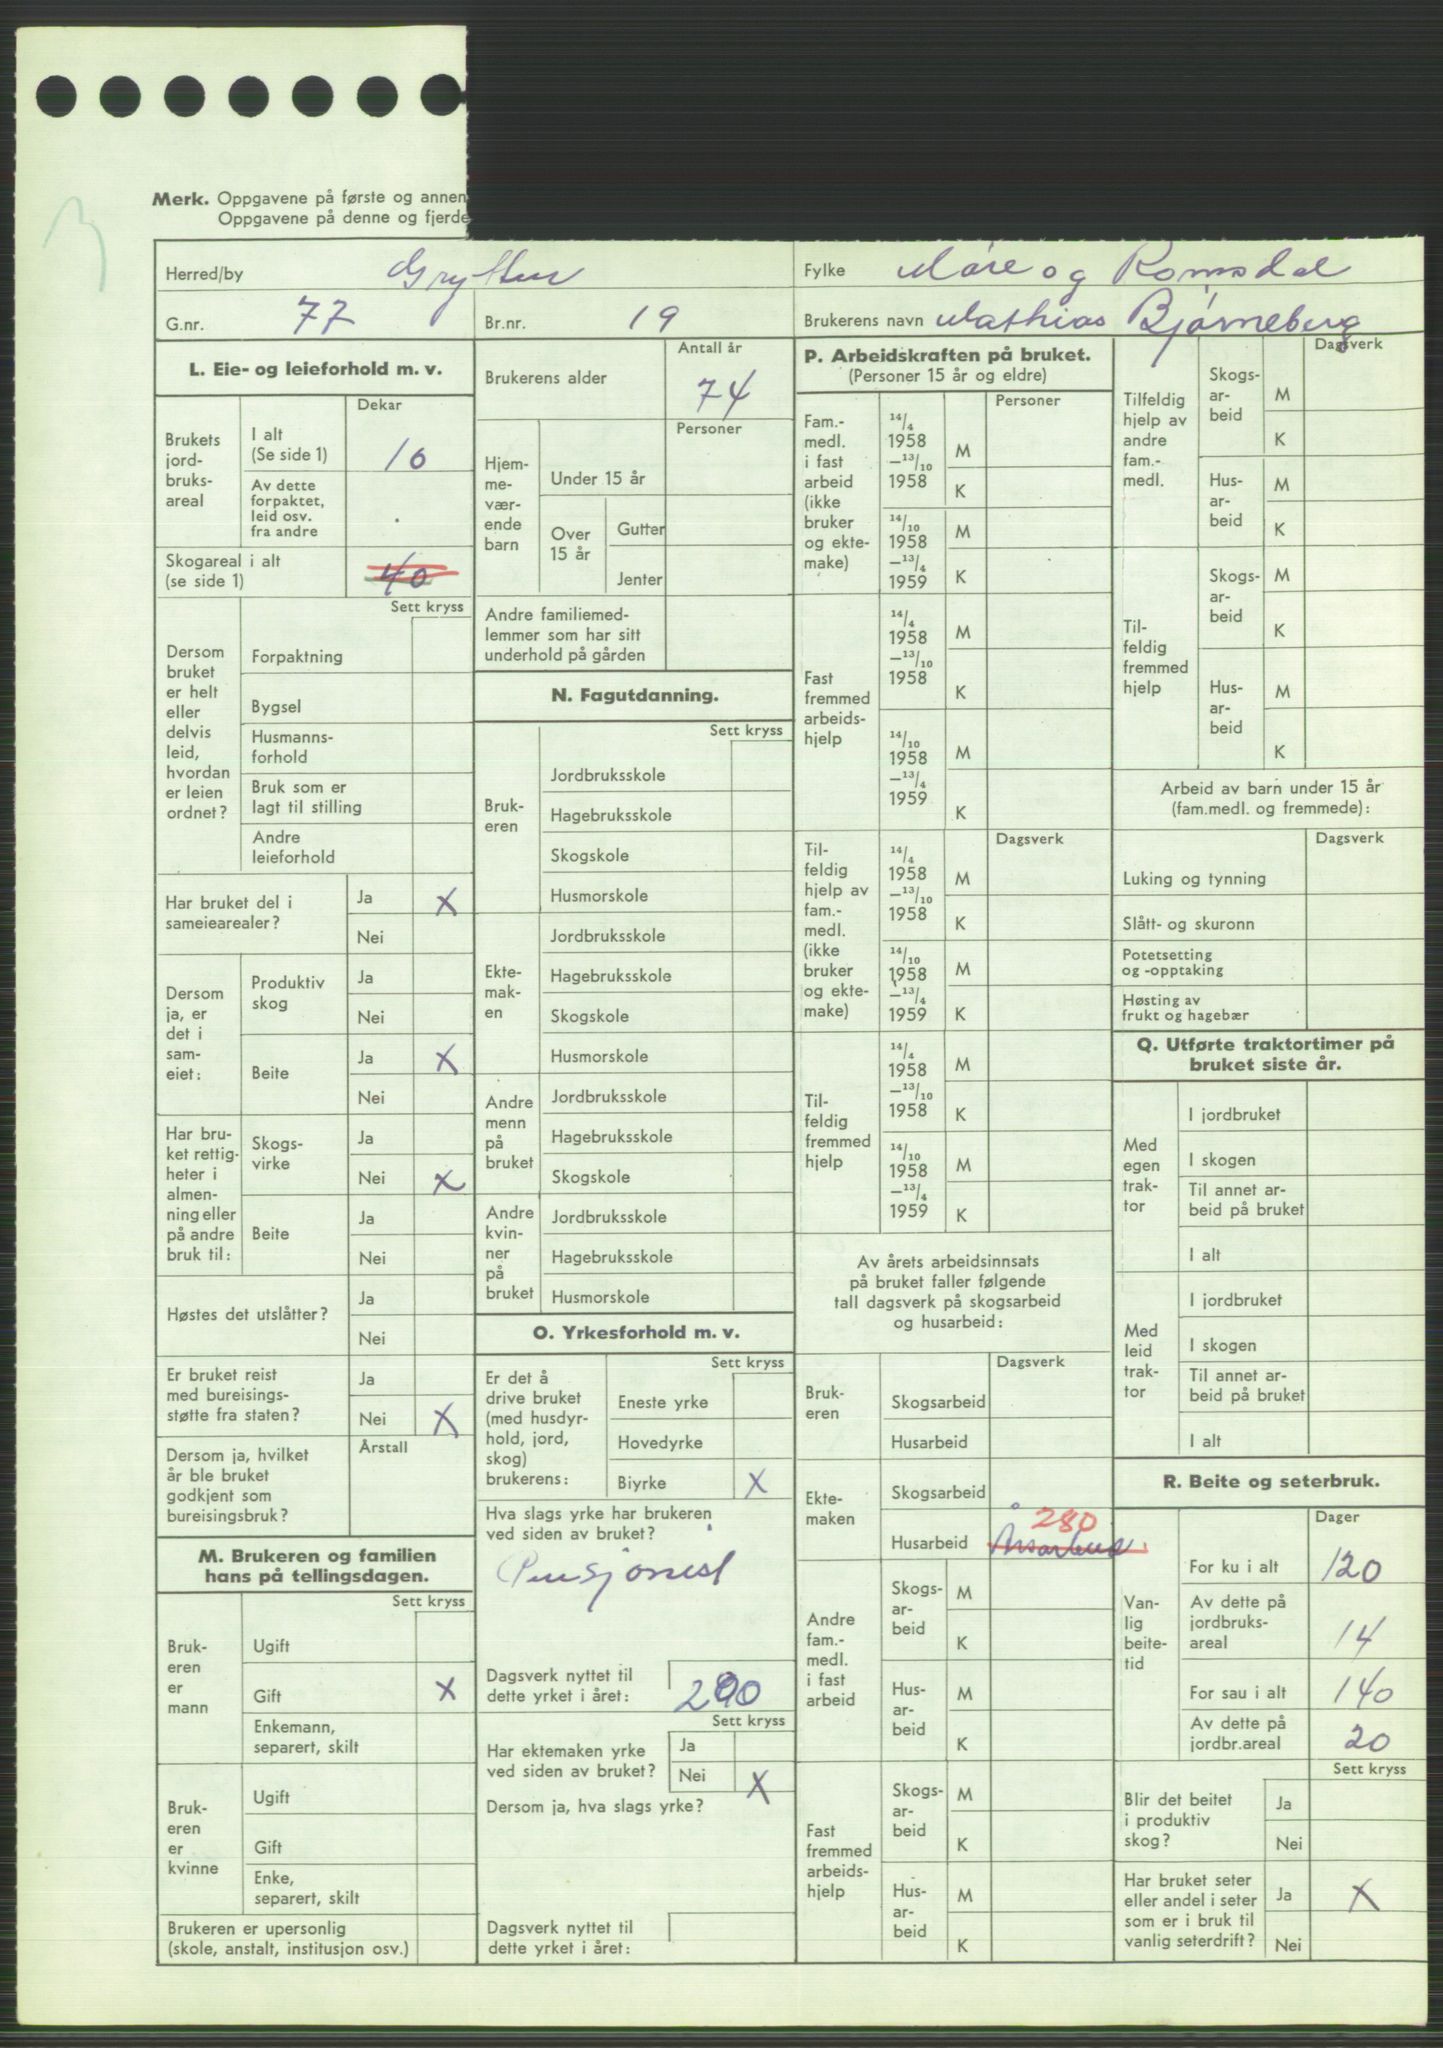 Merk. Oppgavene på første og annen
Oppgavene på denne og fjerde
Herred/by Grytten
Fylke Møre og Romsdal
G.nr. 77
Br.nr. 19
Brukerens navn Mathias Bjørneberg
L. Eie- og leieforhold m. v.
Dekar
Brukets jord-bruks-areal
I alt (Se side 1) 10
Av dette forpaktet, leid osv. fra andre .
Skogareal i alt (se side 1) 40
Sett kryss
Dersom bruket er helt eller delvis leid, hvordan er leien ordnet?
Forpaktning
Bygsel
Husmanns-forhold
Bruk som er lagt til stilling
Andre leieforhold
Har bruket del i sameiearealer?
Ja X
Nei
Dersom ja, er det i sam-eiet:
Produktiv skog
Ja
Nei
Beite
Ja X
Nei
Har bru-ket rettig-heter i almen-ning eller på andre bruk til:
Skogs-virke
Ja
Nei X
Beite
Ja
Nei
Høstes det utslåtter?
Ja
Nei
Er bruket reist med bureisings-støtte fra staten?
Ja
Nei X
Dersom ja, hvilket år ble bruket godkjent som bureisingsbruk?
Årstall
M. Brukeren og familien hans på tellingsdagen.
Sett kryss
Bruk-eren er mann
Ugift
Gift X
Enkemann, separert, skilt
Bruk-eren er kvinne
Ugift
Gift
Enke, separert, skilt
Brukeren er upersonlig (skole, anstalt, institusjon osv.)
Antall år
Brukerens alder 74
Personer
Hjem-me-vær-ende barn
Under 15 år
Over 15 år
Gutter
Jenter
Andre familiemed-lemmer som har sitt underhold på gården
N. Fagutdanning.
Sett kryss
Bruk-eren
Jordbruksskole
Hagebruksskole
Skogskole
Husmorskole
Ekte-mak-en
Jordbruksskole
Hagebruksskole
Skogskole
Husmorskole
Andre menn på bruket
Jordbruksskole
Hagebruksskole
Skogskole
Andre kvin-ner på bruket
Jordbruksskole
Hagebruksskole
Husmorskole
O. Yrkesforhold m. v.
Sett kryss
Er det å drive bruket (med husdyr-hold, jord, skog) brukerens:
Eneste yrke
Hovedyrke
Biyrke X
Hva slags yrke har brukeren ved siden av bruket?
Pensjonist
Dagsverk nyttet til dette yrket i året: 200
Sett kryss
Har ektemaken yrke ved siden av bruket?
Ja
Nei X
Dersom ja, hva slags yrke?
Dagsverk nyttet til dette yrket i året:
P. Arbeidskraften på bruket.
(Personer 15 år og eldre)
Personer
Fam.-medl. i fast arbeid (ikke bruker og ekte-make)
14/4 1958 –13/10 1958
M
K
14/10 1958 –13/4 1959
M
K
Fast fremmed arbeids-hjelp
14/4 1958 –13/10 1958
M
K
14/10 1958 –13/4 1959
M
K
Dagsverk
Til-feldig hjelp av fam.-medl. (ikke bruker og ekte-make)
14/4 1958 –13/10 1958
M
K
14/10 1958 –13/4 1959
M
K
Til-feldig fremmed hjelp
14/4 1958 –13/10 1958
M
K
14/10 1958 –13/4 1959
M
K
Av årets arbeidsinnsats på bruket faller følgende tall dagsverk på skogsarbeid og husarbeid:
Dagsverk
Bruk-eren
Skogsarbeid
Husarbeid
Ekte-maken
Skogsarbeid
280
Husarbeid
Andre fam.-medl. i fast arbeid
Skogs-ar-beid
M
K
Hus-ar-beid
M
K
Fast fremmed arbeids-hjelp
Skogs-ar-beid
M
K
Hus-ar-beid
M
K
Dagsverk
Tilfeldig hjelp av andre fam.-medl.
Skogs-ar-beid
M
K
Hus-ar-beid
M
K
Til-feldig fremmed hjelp
Skogs-ar-beid
M
K
Hus-ar-beid
M
K
Arbeid av barn under 15 år (fam.medl. og fremmede):
Dagsverk
Luking og tynning
Slått- og skuronn
Potetsetting og -opptaking
Høsting av frukt og hagebær
Q. Utførte traktortimer på bruket siste år.
Med egen trak-tor
I jordbruket
I skogen
Til annet ar-beid på bruket
I alt
Med leid trak-tor
I jordbruket
I skogen
Til annet ar-beid på bruket
I alt
R. Beite og seterbruk.
Dager
Van-lig beite-tid
For ku i alt 120
Av dette på jordbruks-areal 14
For sau i alt 140
Av dette på jordbr.areal 20
Sett kryss
Blir det beitet i produktiv skog?
Ja
Nei
Har bruket seter eller andel i seter som er i bruk til vanlig seterdrift?
Ja X
Nei